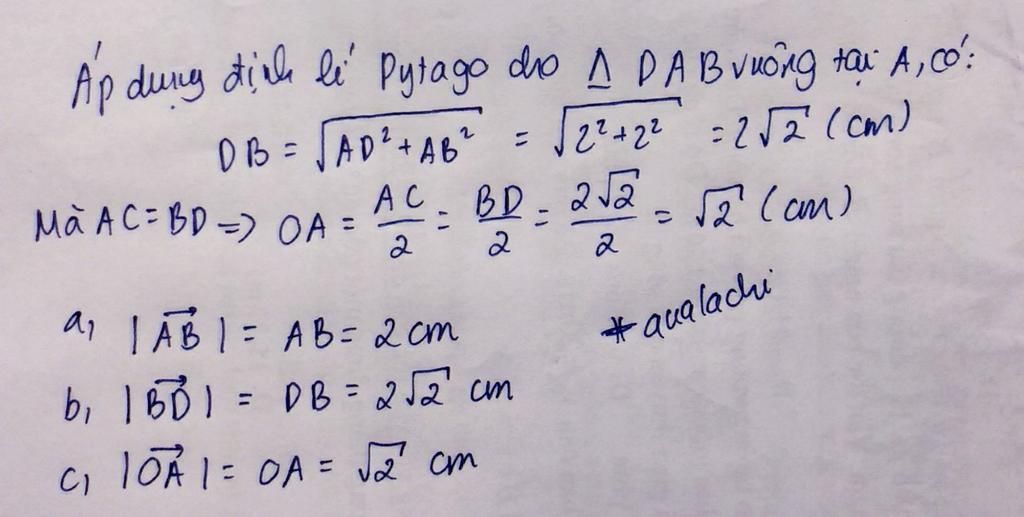 Áp dụng định lí Pytago cho Δ DAB vuông tại A, có:
DB = √(AD² + AB²) = √(2² + 2²) = 2√2 (cm)
Mà AC = BD => OA = AC/2 = BD/2 = 2√2/2 = √2 (cm)
a, |AB→| = AB = 2 cm
* aualachi
b, |BD→| = DB = 2√2 cm
c, |OA→| = OA = √2 cm